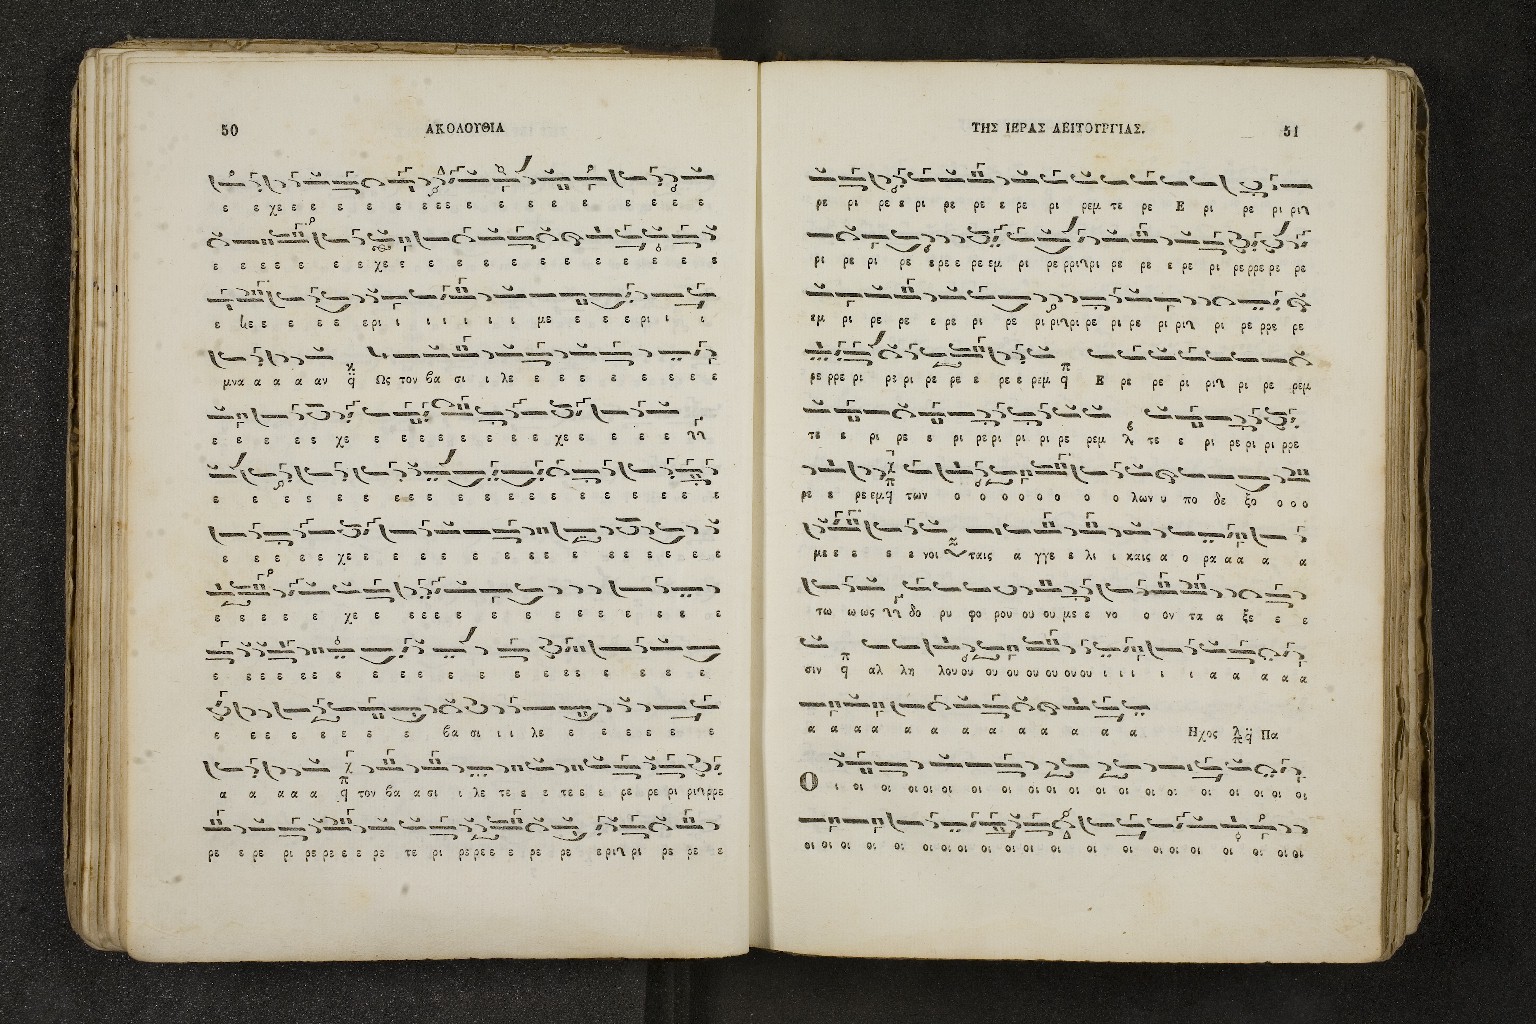 50 ΑΚΟΛΟΥΘΙΑ
ε ε χε ε ε ε ε ε ε ε ε ε ε ε ε ε ε ε ε ε ε
ε ε ε ε ε ε ε χε ε ε ε ε ε ε ε ε ε ε ε ε
ε με ε ε ε ε ε ρι ι ι ι ι ι ι με ε ε ε ρι ι ι
μνα α α α α αν Ως τον βα σι ι λε ε ε ε ε ε ε ε ε
ε ε ε ε ε χε ε ε ε ε ε ε ε ε χε ε ε ε ε ε
ε ε ε ε ε ε ε ε ε ε ε ε ε ε ε ε ε ε ε ε
ε ε ε ε ε χε ε ε ε ε ε ε ε ε ε ε ε ε ε ε ε
ε ε ε ε ε χε ε ε ε ε ε ε ε ε ε ε ε ε ε ε
ε ε ε ε ε ε ε ε ε ε ε ε ε ε ε ε ε ε ε ε
ε ε ε ε ε ε ε ε βα σι ι λε ε ε ε ε ε ε
α α α α α τον βα α σι ι λε τε ε ε τε ε ε ρε ρε ρι
ρε ε ρε ρι ρε ρε ε ε ρε τε ρι ρε ρε ε ε ρε ρε ε ρι ρε ρε ε
ΤΗΣ ΙΕΡΑΣ ΛΕΙΤΟΥΡΓΙΑΣ. 51
ρε ρι ρε ε ρι ρε ρε ε ρε ρι ρεμ τε ρε Ε ρι ρε ρι
ρι ρε ρι ρε ε ρε ε ρε εμ ρι ρε ρε ρε ε ρε ρι ρε ρρε ρε ρε
εμ ρι ρε ρε ε ρε ρι ρε ρι ρε ρι ρε ρι ρι ρε ρρε ρε
ρε ρρε ρι ρε ρι ρε ρε ε ρε ε ρεμ Ε ρε ρε ρι ρι ρε ρεμ
τε ε ρι ρε ε ρι ρε ρι ρι ρι ρε ρεμ τε ε ρι ρε ρι ρι ρρε
ρε ε ρε εμ των ο ο ο ο ο ο ο ο ο λων υ πο δε ξο ο ο ο
με ε ε ε ε νοι ταις α γγε ε λι ι καις α ο ρα α α α α
τω ω ως δο ρυ φο ρου ου ου με ε νο ο ον τα α ξε ε ε
σιν αλ λη λου ου ου ου ου ου ου ου ι ι ι ι ι α α α α α
α α α α α α α α α α α α α Ηχος Πα
Ο ι οι οι οι οι οι οι οι οι οι οι οι οι οι οι οι οι οι οι
οι οι οι οι οι οι οι οι οι οι οι οι οι οι οι οι οι οι οι οι οι